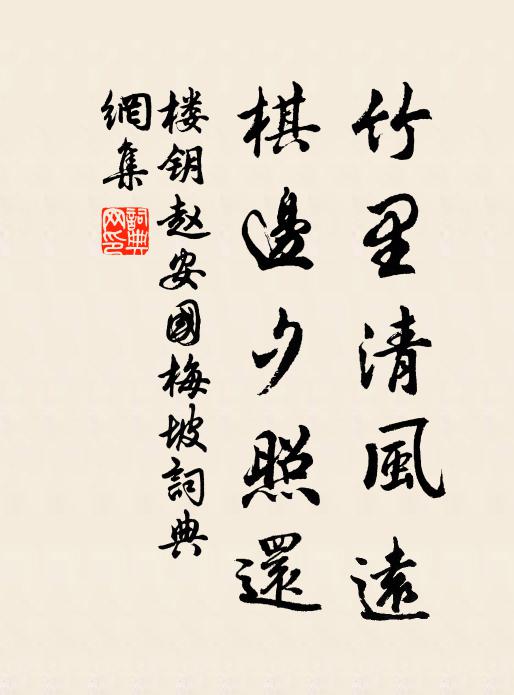 竹里清風遠
棋邊夕照還
楼钥赵安國梅坡詞典
網集
詞典
网印